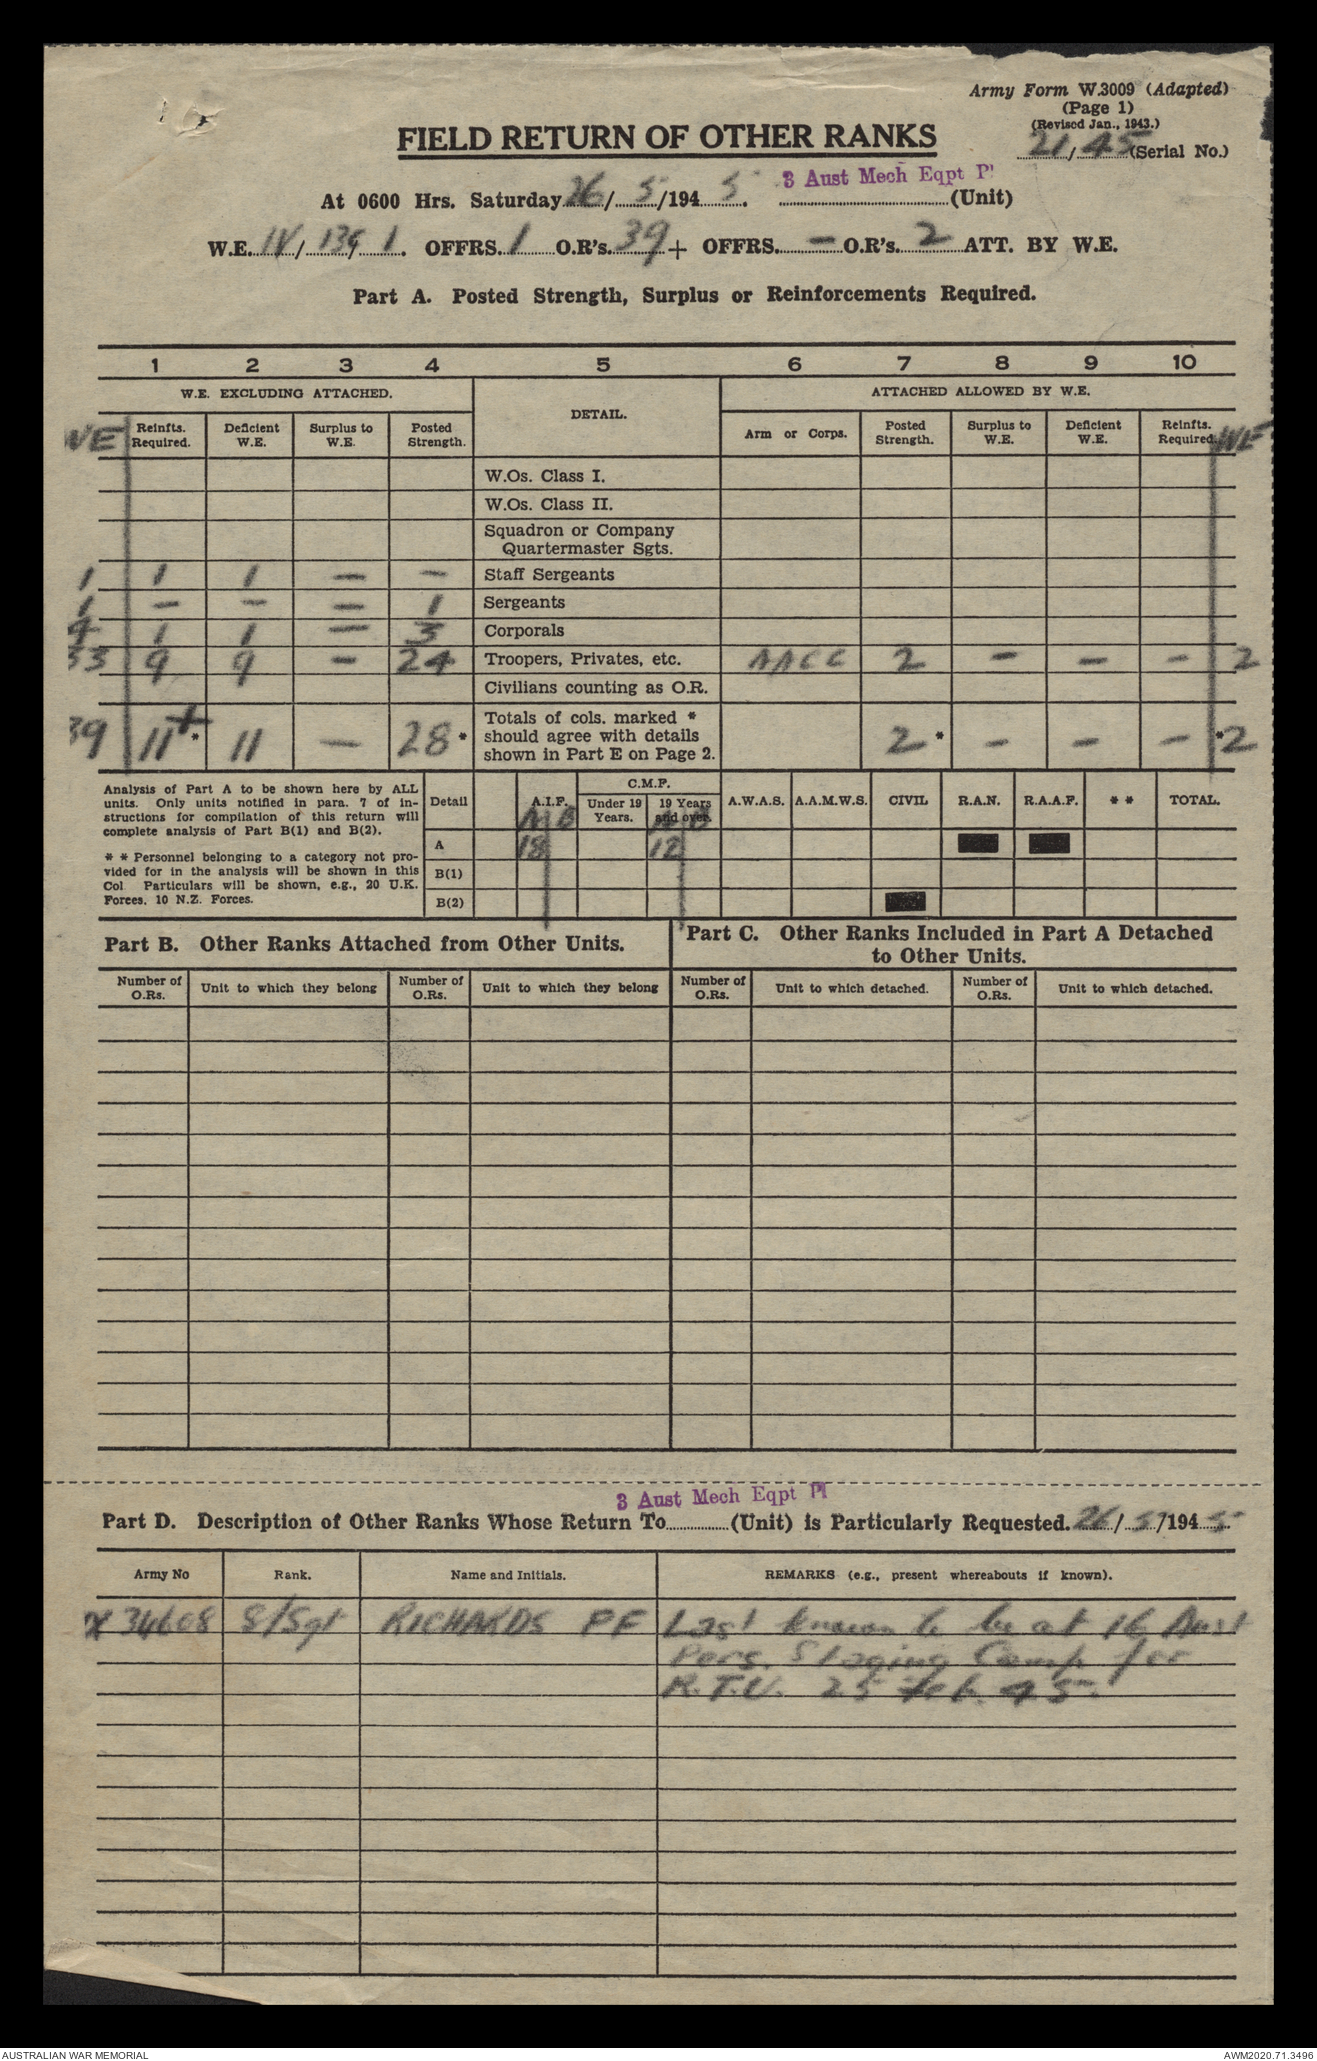 Army Form W.3009 (Adapted)
(Page 1)
(Revised Jan., 1943.)
21/45 (Serial No.)
FIELD RETURN OF OTHER RANKS
3 Aust Mech Eqpt Pl
At 0600 Hrs. Saturday 26/5/1945. (Unit)
W.E. IV/139/1. OFFRS. 1 O.R's. 39 + OFFRS. — O.R's. 2 ATT. BY W.E.
Part A. Posted Strength, Surplus or Reinforcements Required.
1 2 3 4 5 6 7 8 9 10
W.E. EXCLUDING ATTACHED. DETAIL. ATTACHED ALLOWED BY W.E.
WE Reinfts. Required. Deficient W.E. Surplus to W.E. Posted Strength. Arm or Corps. Posted Strength. Surplus to W.E. Deficient W.E. Reinfts. Required. WE
W.Os. Class I.
W.Os. Class II.
Squadron or Company
Quartermaster Sgts.
1 1 1 — — Staff Sergeants
1 — — — 1 Sergeants
4 1 1 — 3 Corporals
33 9 9 — 24 Troopers, Privates, etc. AACC 2 — — — 2
Civilians counting as O.R.
Totals of cols. marked *
39 11+* 11 — 28* should agree with details 2* — — — *2
shown in Part E on Page 2.
Analysis of Part A to be shown here by ALL
units. Only units notified in para. 7 of in-
structions for compilation of this return will
complete analysis of Part B(1) and B(2).
* * Personnel belonging to a category not pro-
vided for in the analysis will be shown in this
Col Particulars will be shown, e.g., 20 U.K.
Forces, 10 N.Z. Forces.
Detail A.I.F. C.M.F. Under 19 Years. 19 Years and over. A.W.A.S. A.A.M.W.S. CIVIL R.A.N. R.A.A.F. * * TOTAL.
A B A B
A 18 12
B(1)
B(2)
Part B. Other Ranks Attached from Other Units.
Part C. Other Ranks Included in Part A Detached
to Other Units.
Number of O.Rs. Unit to which they belong Number of O.Rs. Unit to which they belong Number of O.Rs. Unit to which detached. Number of O.Rs. Unit to which detached.
3 Aust Mech Eqpt Pl
Part D. Description of Other Ranks Whose Return To (Unit) is Particularly Requested. 26/5/1945
Army No Rank. Name and Initials. REMARKS (e.g., present whereabouts if known).
34608 S/Sgt RICHARDS PF Last known to be at 16 Aust
Pers. Staging Camp for
R.T.U. 25 Feb. 45.
AUSTRALIAN WAR MEMORIAL AWM2020.71.3496